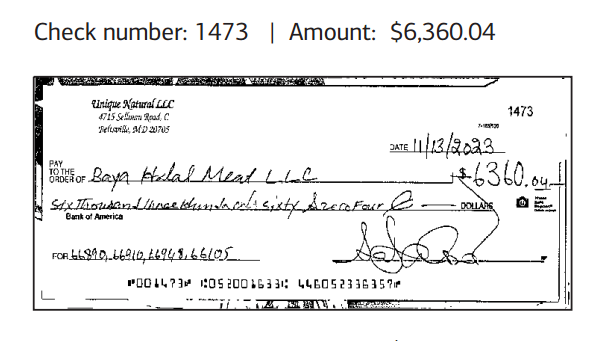 Check number: 1473 | Amount: $6,360.04
Unique Natural LLC
4715 Sellman Road, C
Beltsville, MD 20705
1473
DATE 11/13/2023
PAY
TO THE
ORDER OF Baya Halal Meat LLC $6360.04
Six Thousand Three Hundred Sixty &zero Four DOLLARS
Bank of America
FOR 66890, 66910, 66948, 66105
⑈001473⑈ ⑆052001633⑆ 446052336357⑈